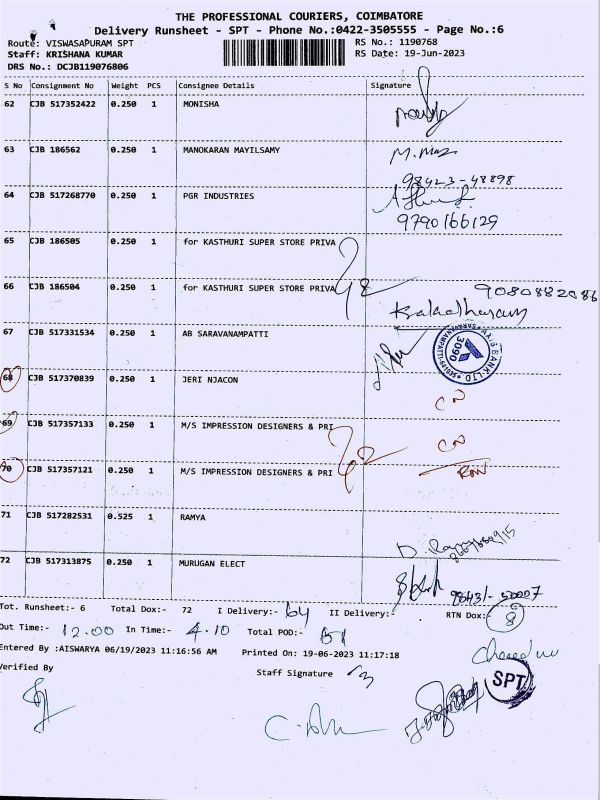 THE PROFESSIONAL COURIERS, COIMBATORE
Delivery Runsheet - SPT - Phone No.:0422-3505555 - Page No.:6
Route: VISWASAPURAM SPT
RS No.: 1190768
Staff: KRISHANA KUMAR
RS Date: 19-Jun-2023
DRS No.: DCJB119076806
S No Consignment No Weight PCS Consignee Details Signature
62 CJB 517352422 0.250 1 MONISHA
63 CJB 186562 0.250 1 MANOKARAN MAYILSAMY
98423-48898
64 CJB 517268770 0.250 1 PGR INDUSTRIES
9790166129
65 CJB 186505 0.250 1 for KASTHURI SUPER STORE PRIVA
66 CJB 186504 0.250 1 for KASTHURI SUPER STORE PRIVA
9080882086
67 CJB 517331534 0.250 1 AB SARAVANAMPATTI
AXIS BANK LTD 3090
68 CJB 517370839 0.250 1 JERI NJACON
CN
69 CJB 517357133 0.250 1 M/S IMPRESSION DESIGNERS & PRI
CN
70 CJB 517357121 0.250 1 M/S IMPRESSION DESIGNERS & PRI
71 CJB 517282531 0.525 1 RAMYA
72 CJB 517313875 0.250 1 MURUGAN ELECT
Tot. Runsheet:- 6 Total Dox:- 72 I Delivery:- 64 II Delivery:- RTN Dox:- 8
Out Time:- 12.00 In Time:- 4.10 Total POD:-
Entered By :AISWARYA 06/19/2023 11:16:56 AM Printed On: 19-06-2023 11:17:18
Verified By
Staff Signature
SPT